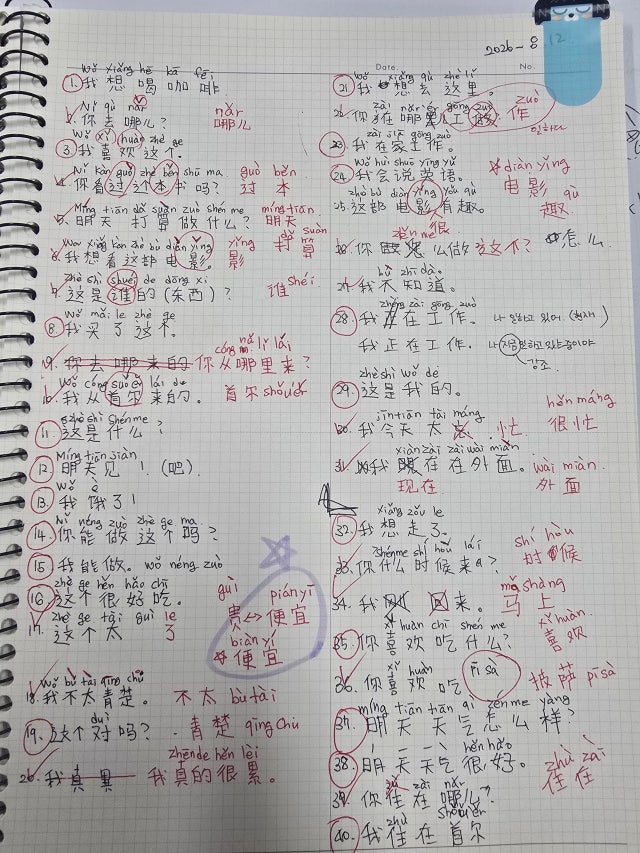 2026-8 12
Date.
No.
Wǒ xiǎng hē kā fēi
①我想喝咖啡
Nǐ qù nǎr
2. 你去哪儿? nǎr 哪儿
Wǒ xǐ huān zhè ge
③我喜欢这个.
Nǐ kàn guò zhè běn shū ma guò běn
4. 你看过这个本书吗? 过 本
Míng tiān dǎ suàn zuò shén me míng tiān
5. 明天打算做什么? 明天 打算
Wǒ xiǎng kàn zhè bù diàn yǐng yǐng
6. 我想看这部电影. 影
Zhè shì shuéi de dōng xi shéi
7. 这是谁的(东西)? 谁
Wǒ mǎi le zhè ge
⑧我买了这个.
cóng nǎ lǐ lái
9. 你去哪来的 你从哪里来?
Wǒ cóng lái de
10. 我从首尔来的. 首尔 shǒuěr
zhè shì shénme
11. 这是什么?
Míng tiān jiàn
⑫ 明天见!(吧).
Wǒ è
⑬ 我饿了!
Nǐ néng zuò zhè ge ma
⑭你能做这个吗?
⑮ 我能做. wǒ néng zuò
zhè ge hěn hǎo chī
⑯这个很好吃.
guì piányī
贵↔便宜
zhè ge tài guì le
17. 这个太 了
biàn yí
☆便宜
Wǒ bù tài qīng chǔ
18. 我不太清楚. 不太 bù tài
duì
⑲ 这个对吗? 青楚 qīng chǔ
zhēnde hěn lèi
20. 我真累 我真的很累.
Wǒ xiǎng qù zhè lǐ
㉑我想去这里.
zài nǎr ér gōng zuò zuò
22. 你在哪儿工做? 作
zài jiā gōng zuò
㉓我在家工作.
Wǒ huì shuō yīng yǔ
㉔我会说英语.
☆diàn yǐng
电影
zhè bù diàn yǐng yǒu qù
25. 这部电影有趣. 趣 qù
很
zěn me
26. 你怎么做这个? 怎么
bù zhī dào
27. 我不知道.
zhèng zài gōng zuò
㉘ 我在工作. 나 일하고 있어. (현재)
我正在工作. 나 지금 일하고 있는중이야
강조.
zhè shì wǒ de
㉙这是我的.
hěn máng
jīn tiān tài máng
30. 我今天太忙. 忙 很忙
xiàn zài zài wài miàn
31. 我现在在外面. wài miàn
现在 外面
xiǎng zǒu le
㉜我想走了.
shí hòu
shénme shí hǒu lái
33. 你什么时候来? 时候
mǎ shàng
34. 我 回来. 马上
xǐ huān
xǐ huān chī shén me
㉟你喜欢吃什么? 喜欢
xǐ huān
36. 你喜欢吃 pī sà 披萨 pī sà
míng tiān tiān qì zěn me yàng
㊲明天天气怎么样?
hěn hǎo
㊳明天天气很好.
zhù zài
zhù zài nǎr
39. 你住在哪儿? 住 住
zhù shǒuěr
㊵我住在首尔